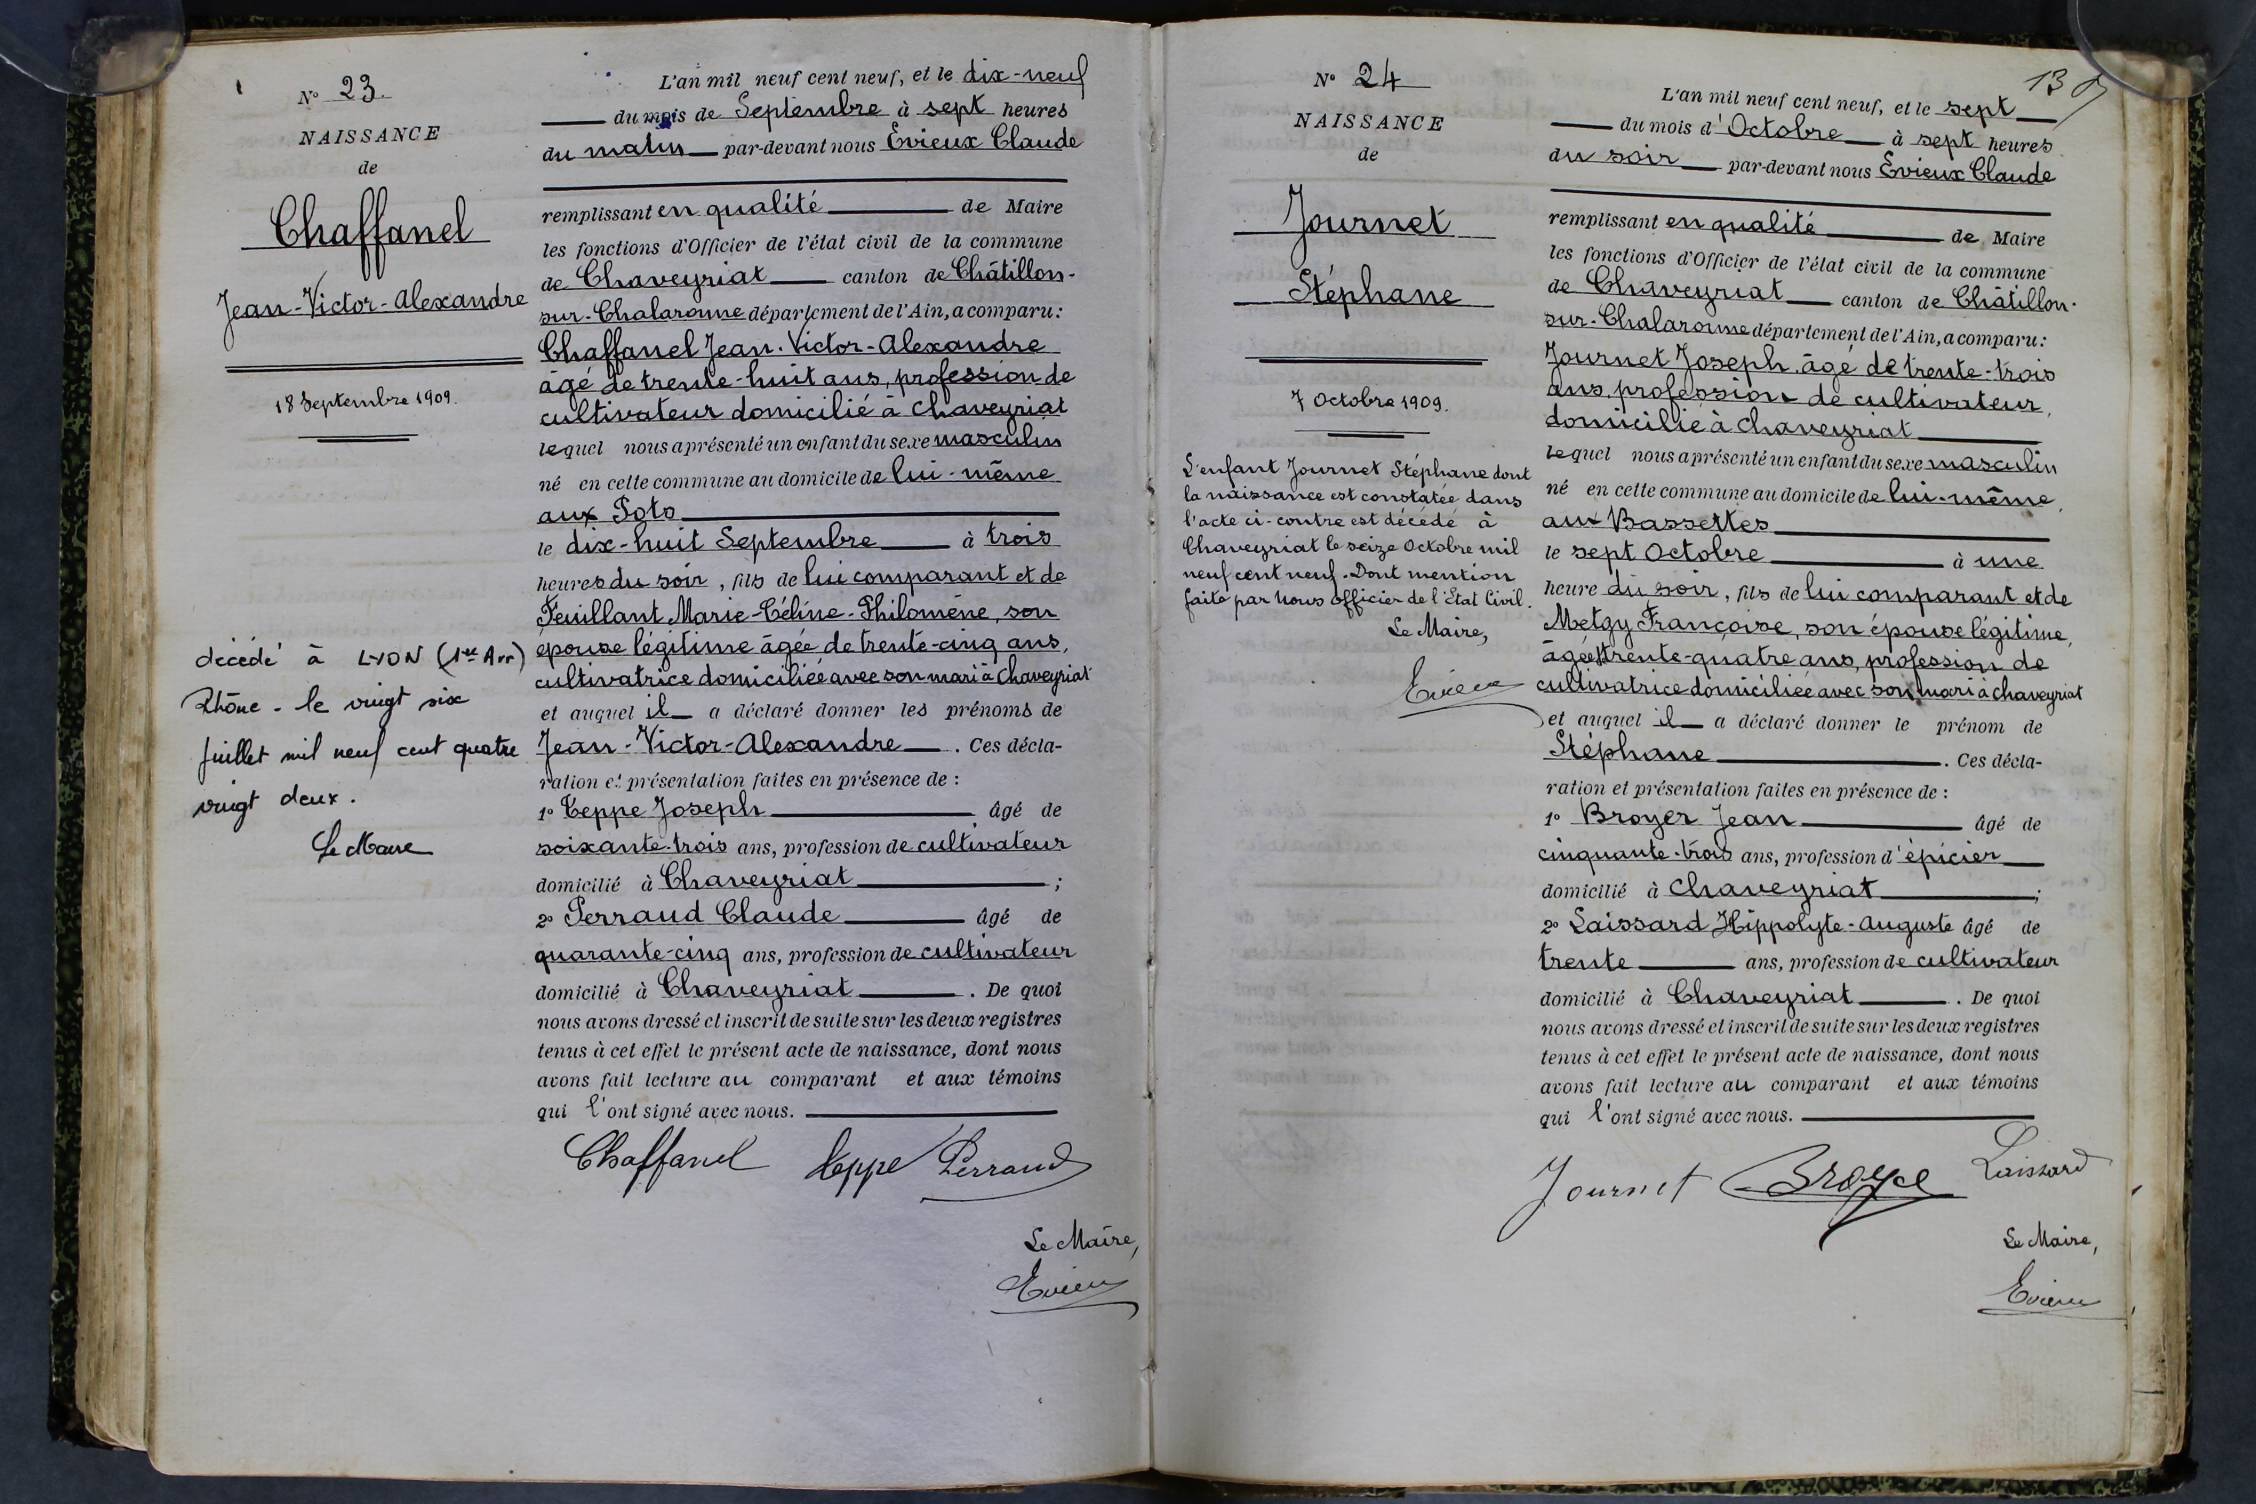 N° 23
NAISSANCE
de
Chaffanel
Jean-Victor-Alexandre
18 Septembre 1909.
décédé à LYON (1er Arr)
Rhône - le vingt six
juillet mil neuf cent quatre
vingt deux.
Le Maire
L'an mil neuf cent neuf, et le dix-neuf
du mois de Septembre à sept heures
du matin par-devant nous Evieux Claude
remplissant en qualité de Maire
les fonctions d'Officier de l'état civil de la commune
de Chaveyriat canton de Châtillon-
sur-Chalaronne département de l'Ain, a comparu :
Chaffanel Jean-Victor-Alexandre
âgé de trente-huit ans, profession de
cultivateur domicilié à Chaveyriat
lequel nous a présenté un enfant du sexe masculin
né en cette commune au domicile de lui-même
aux Poto
le dix-huit Septembre à trois
heures du soir, fils de lui comparant et de
Feuillant Marie-Céline-Philomène, son
épouse légitime âgée de trente-cinq ans,
cultivatrice domiciliée avec son mari à Chaveyriat
et auquel il a déclaré donner les prénoms de
Jean-Victor-Alexandre. Ces décla-
ration et présentation faites en présence de :
1° Teppe Joseph âgé de
soixante-trois ans, profession de cultivateur
domicilié à Chaveyriat ;
2° Perraud Claude âgé de
quarante-cinq ans, profession de cultivateur
domicilié à Chaveyriat. De quoi
nous avons dressé et inscrit de suite sur les deux registres
tenus à cet effet le présent acte de naissance, dont nous
avons fait lecture au comparant et aux témoins
qui l'ont signé avec nous.
Chaffanel Teppe Perraud
Le Maire,
Evieux
13
N° 24
NAISSANCE
de
Journet
Stéphane
7 Octobre 1909.
L'enfant Journet Stéphane dont
la naissance est constatée dans
l'acte ci-contre est décédé à
Chaveyriat le seize Octobre mil
neuf cent neuf. Dont mention
faite par Nous Officier de l'Etat Civil.
Le Maire,
Evieux
L'an mil neuf cent neuf, et le sept
du mois d'Octobre à sept heures
du soir par-devant nous Evieux Claude
remplissant en qualité de Maire
les fonctions d'Officier de l'état civil de la commune
de Chaveyriat canton de Châtillon-
sur-Chalaronne département de l'Ain, a comparu :
Journet Joseph, âgé de trente-trois
ans, profession de cultivateur,
domicilié à Chaveyriat
lequel nous a présenté un enfant du sexe masculin
né en cette commune au domicile de lui-même,
aux Bassettes
le sept Octobre à une
heure du soir, fils de lui comparant et de
Metgy Françoise, son épouse légitime,
âgée trente-quatre ans, profession de
cultivatrice domiciliée avec son mari à Chaveyriat
et auquel il a déclaré donner le prénom de
Stéphane. Ces décla-
ration et présentation faites en présence de :
1° Broyer Jean âgé de
cinquante-trois ans, profession d'épicier
domicilié à Chaveyriat ;
2° Laissard Hippolyte-Auguste âgé de
trente ans, profession de cultivateur
domicilié à Chaveyriat. De quoi
nous avons dressé et inscrit de suite sur les deux registres
tenus à cet effet le présent acte de naissance, dont nous
avons fait lecture au comparant et aux témoins
qui l'ont signé avec nous.
Journet Broyer Laissard
Le Maire,
Evieux